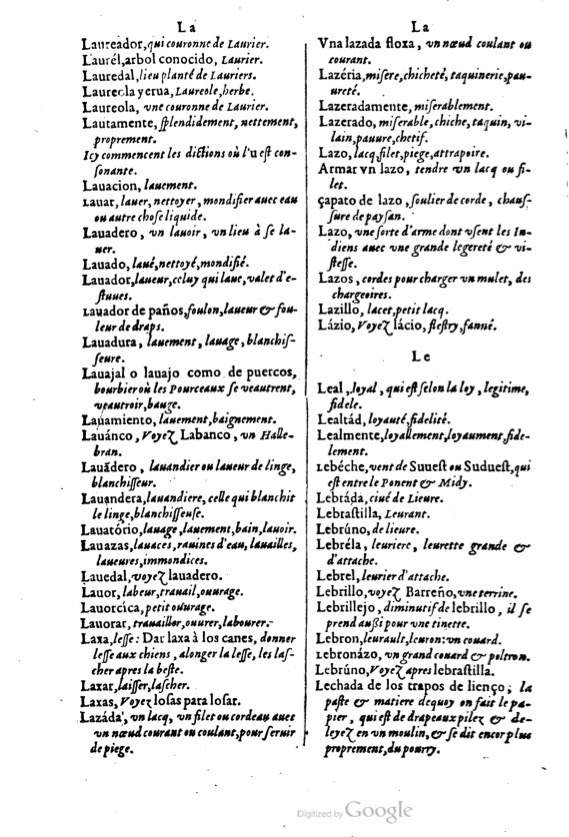 La
Laureador, qui couronne de Laurier.
Laurél, arbol conocido, Laurier.
Lauredal, lieu planté de Lauriers.
Laureola yerua, Laureole, herbe.
Laureola, vne couronne de Laurier.
Lautamente, ſplendidement, nettement,
proprement.
Icy commencent les dictions où l'u est con-
ſonante.
Lauacion, lauement.
Lauar, lauer, nettoyer, mondifier auec eau
ou autre choſe liquide.
Lauadero, vn lauoir, vn lieu à ſe la-
uer.
Lauado, laué, nettoyé, mondifié.
Lauador, laueur, celuy qui laue, valet d'e-
ſtuues.
Lauador de paños, foulon, laueur & fou-
leur de draps.
Lauadura, lauement, lauage, blanchiſ-
ſeure.
Lauajal o lauajo como de puercos,
bourbier où les Pourceaux ſe veautrent,
veautroir, bauge.
Lauamiento, lauement, baignement.
Lauánco, Voyez Labanco, vn Halle-
bran.
Lauãdero, lauandier ou laueur de linge,
blanchiſſeur.
Lauandera, lauandiere, celle qui blanchit
le linge, blanchiſſeuſe.
Lauatório, lauage, lauement, bain, lauoir.
Lauazas, lauaces, rauines d'eau, lauailles,
laueures, immondices.
Lauedal, voyez lauadero.
Lauor, labeur, trauail, ouurage.
Lauorcíca, petit ouurage.
Lauorar, trauailler, ouurer, labourer.
Laxa, leſſe: Dar laxa à los canes, donner
leſſe aux chiens, alonger la leſſe, les laſ-
cher apres la beſte.
Laxar, laiſſer, laſcher.
Laxas, Voyez losas para losar.
Lazáda, vn lacq, vn filet ou cordeau auec
vn nœud courant ou coulant, pour ſeruir
de piege.
La
Vna lazada floxa, vn nœud coulant ou
courant.
Lazéria, miſere, chicheté, taquinerie, pau-
ureté.
Lazeradamente, miſerablement.
Lazerado, miſerable, chiche, taquin, vi-
lain, pauure, chetif.
Lazo, lacq, filet, piege, attrapoire.
Armar vn lazo, tendre vn lacq ou fi-
let.
çapato de lazo, ſoulier de corde, chauſ-
ſure de payſan.
Lazo, vne ſorte d'arme dont vſent les In-
diens auec vne grande legereté & vi-
ſteſſe.
Lazos, cordes pour charger vn mulet, des
chargeoires.
Lazillo, lacet, petit lacq.
Lázio, Voyez lácio, fleſtry, fanné.
Le
Leal, loyal, qui eſt ſelon la loy, legitime,
fidele.
Lealtád, loyauté, fidelité.
Lealmente, loyallement, loyaument, fide-
lement.
Lebéche, vent de Suueſt ou Sudueſt, qui
eſt entre le Ponent & Midy.
Lebráda, ciué de Lieure.
Lebraſtilla, Leurant.
Lebrúno, de lieure.
Lebréla, leuriere, leurette grande &
d'attache.
Lebrel, leurier d'attache.
Lebrillo, voyez Barreño, vne terrine.
Lebrillejo, diminutif de lebrillo, il ſe
prend auſſi pour vne tinette.
Lebron, leurault, leuron: vn couard.
Lebronázo, vn grand couard & poltron.
Lebrúno, Voyez apres lebraſtilla.
Lechada de los trapos de lienço; la
paſte & matiere dequoy on fait le pa-
pier, qui eſt de drapeaux pilez & de-
leyez en vn moulin, & ſe dit encor plus
proprement, du pourry.
Digitized by Google